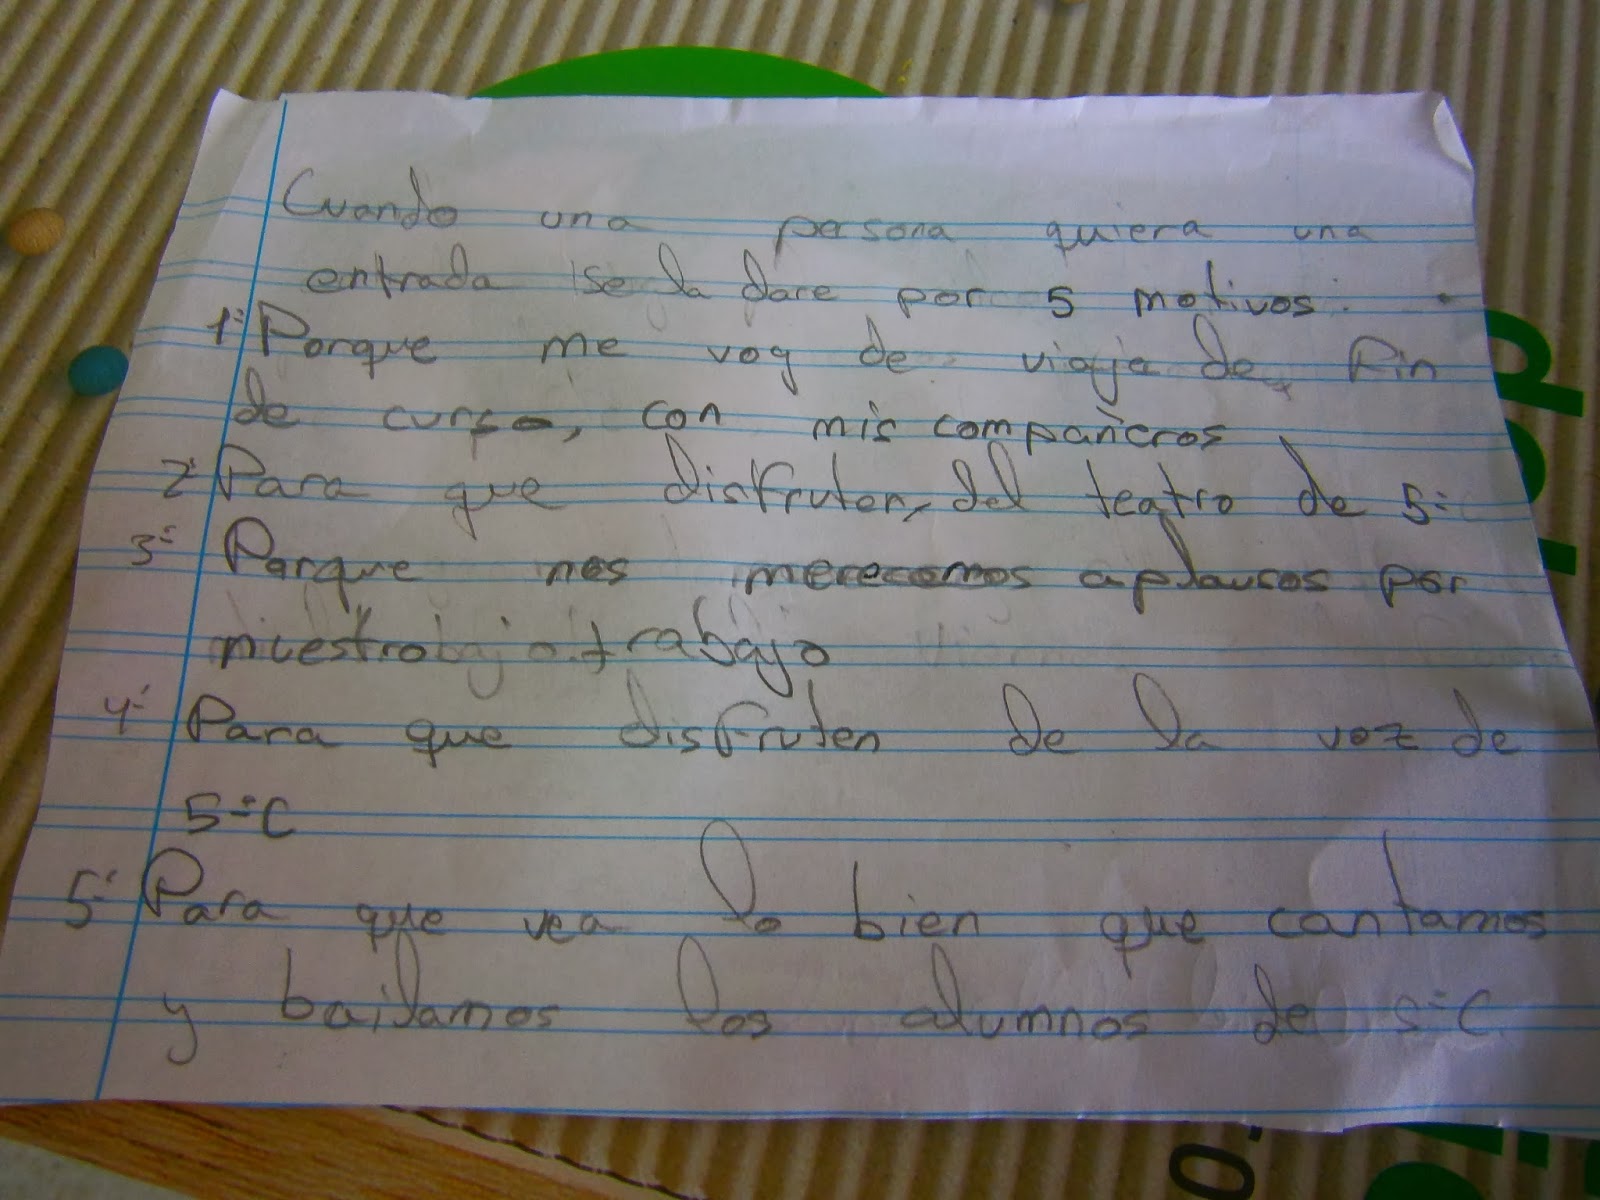 Cuando una persona quiera una
entrada se la dare por 5 motivos:
1º Porque me voy de viaje de fin
de curso, con mis compañeros
2º Para que disfruten, del teatro de 5º
3º Porque nos merecemos aplausos por
nuestro trabajo
4º Para que disfruten de la voz de
5ºC
5º Para que vea lo bien que cantamos
y bailamos los alumnos de 5ºC